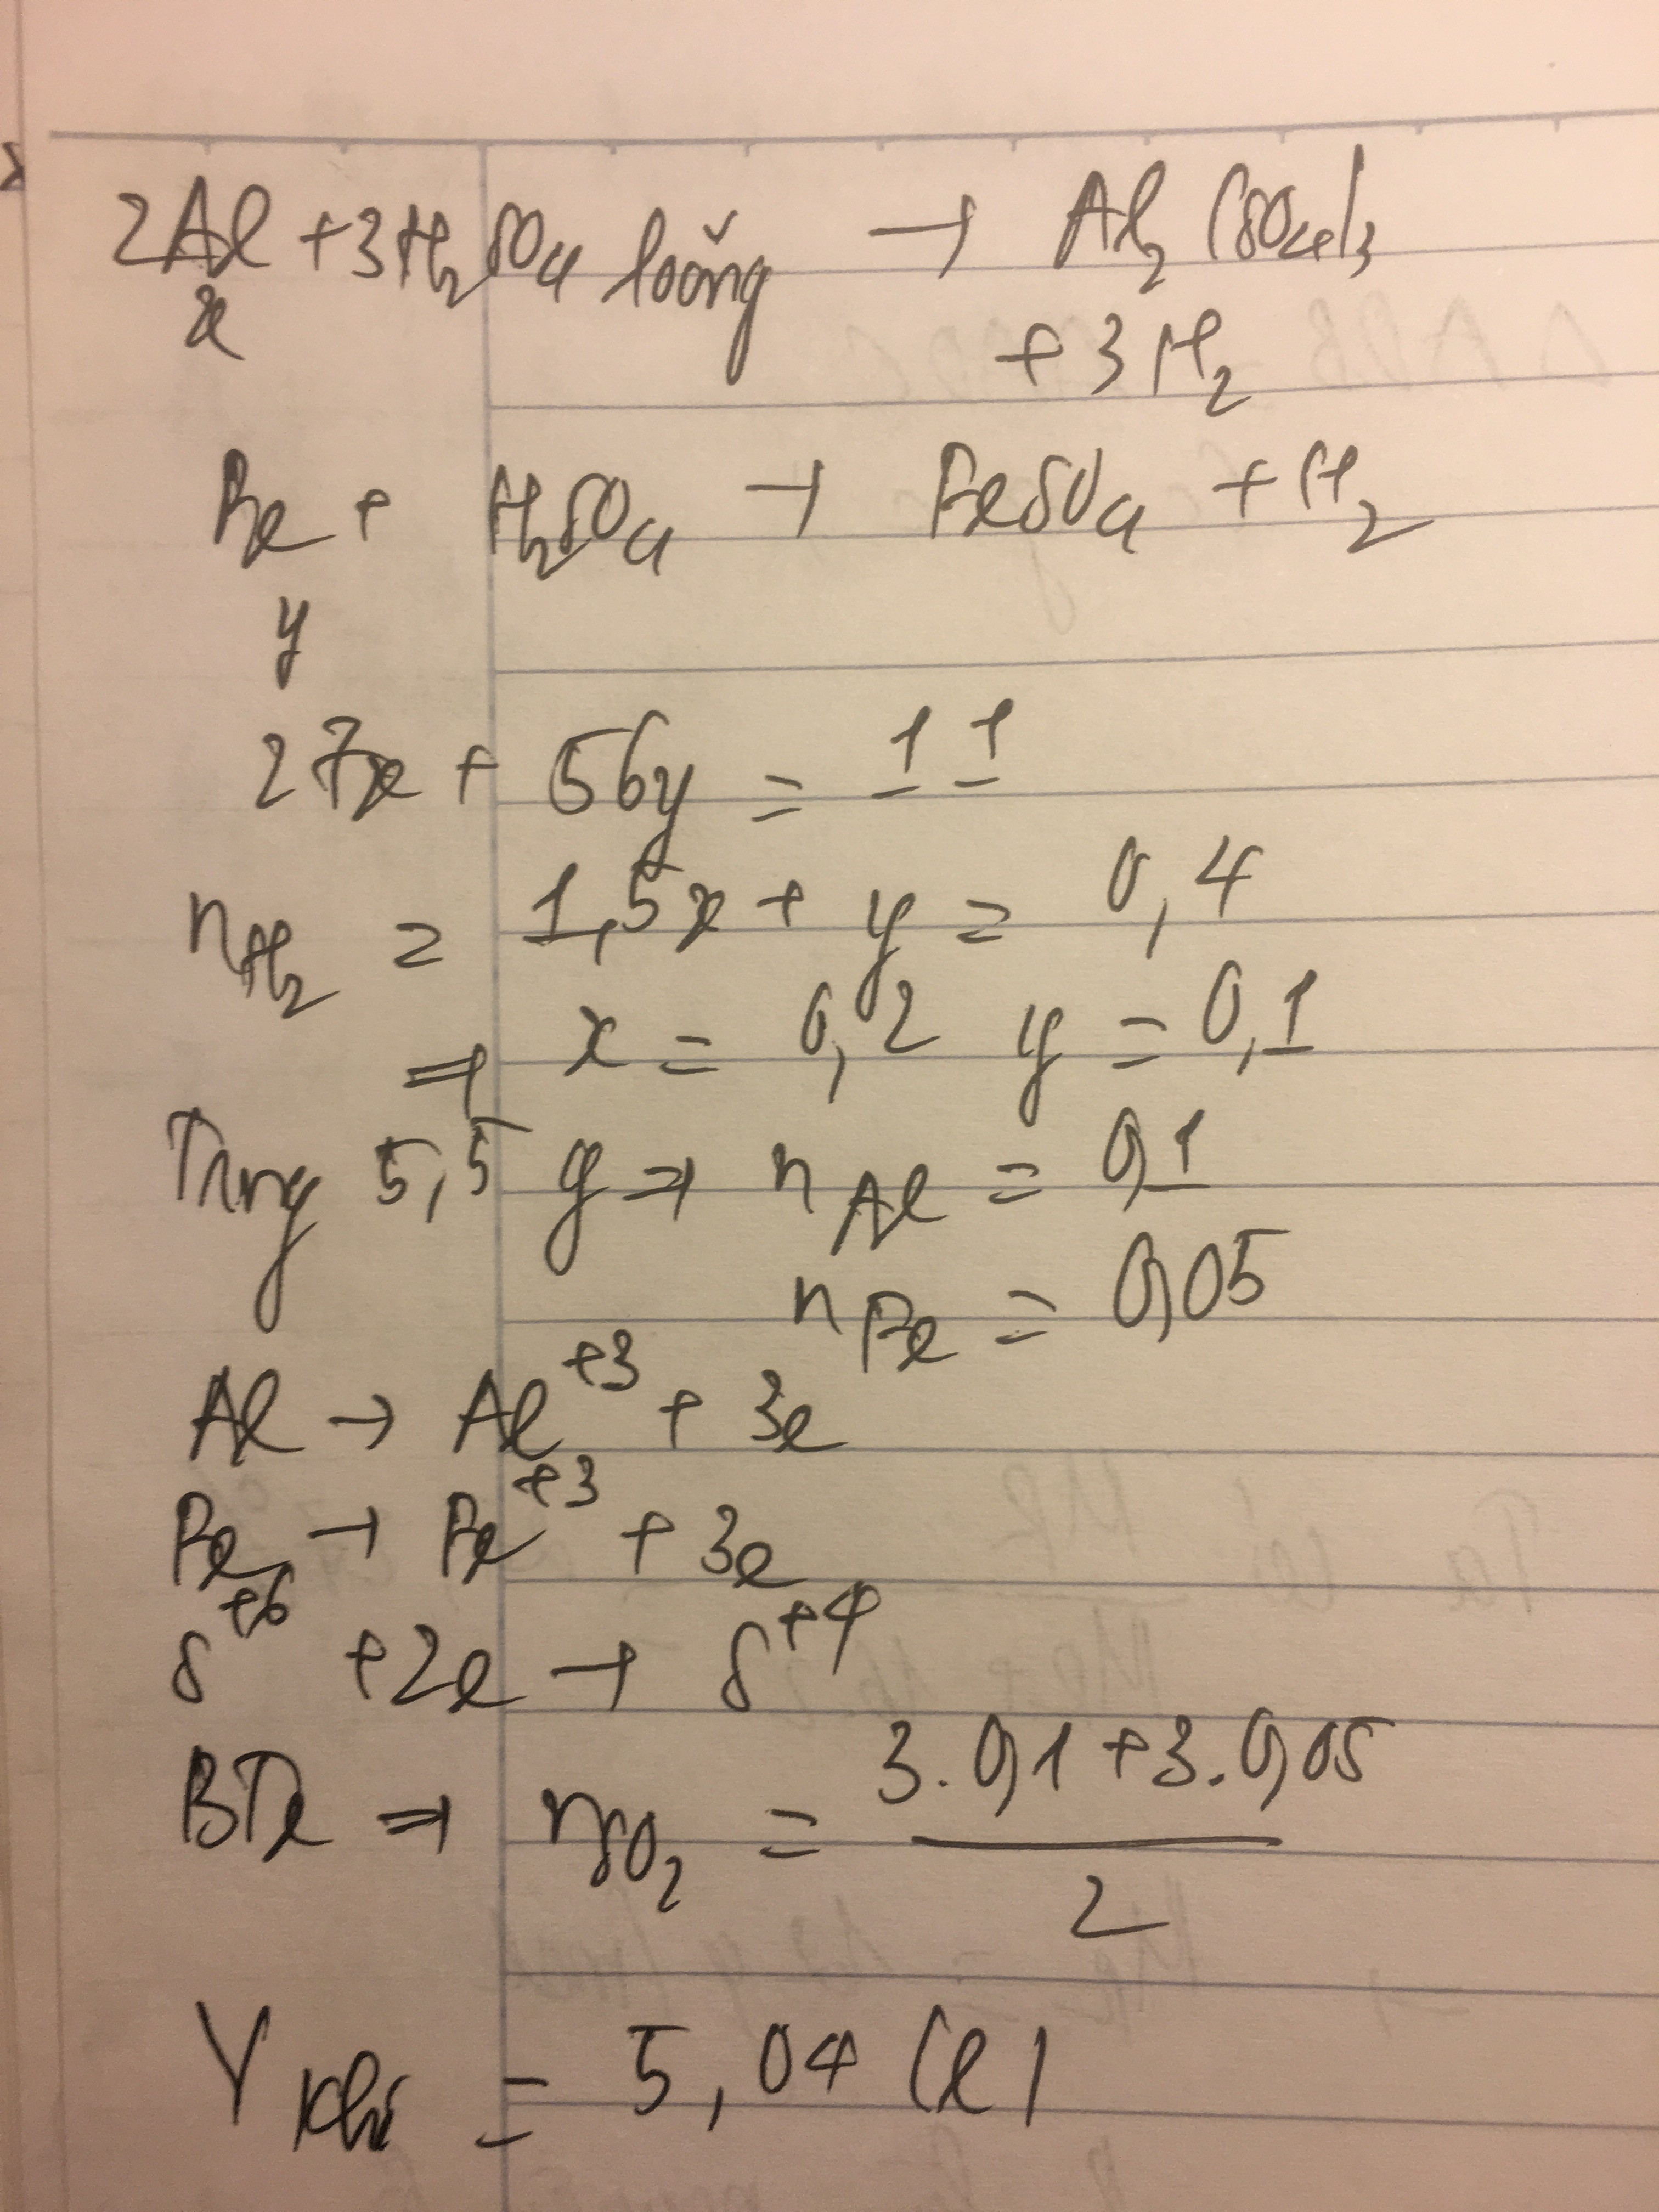 2Al + 3H₂SO₄ loãng → Al₂(SO₄)₃
x
+ 3H₂
Fe + H₂SO₄ → FeSO₄ + H₂
y
27x + 56y = 11
nH₂ = 1,5x + y = 0,4
⇒ x = 0,2 y = 0,1
Trong 5,5 g ⇒ nAl = 0,1
nFe = 0,05
Al → Al⁺³ + 3e
Fe → Fe⁺³ + 3e
S⁺⁶ + 2e → S⁺⁴
BTe ⇒ nSO₂ = (3.0,1 + 3.0,05)/2
V khí = 5,04 (l)